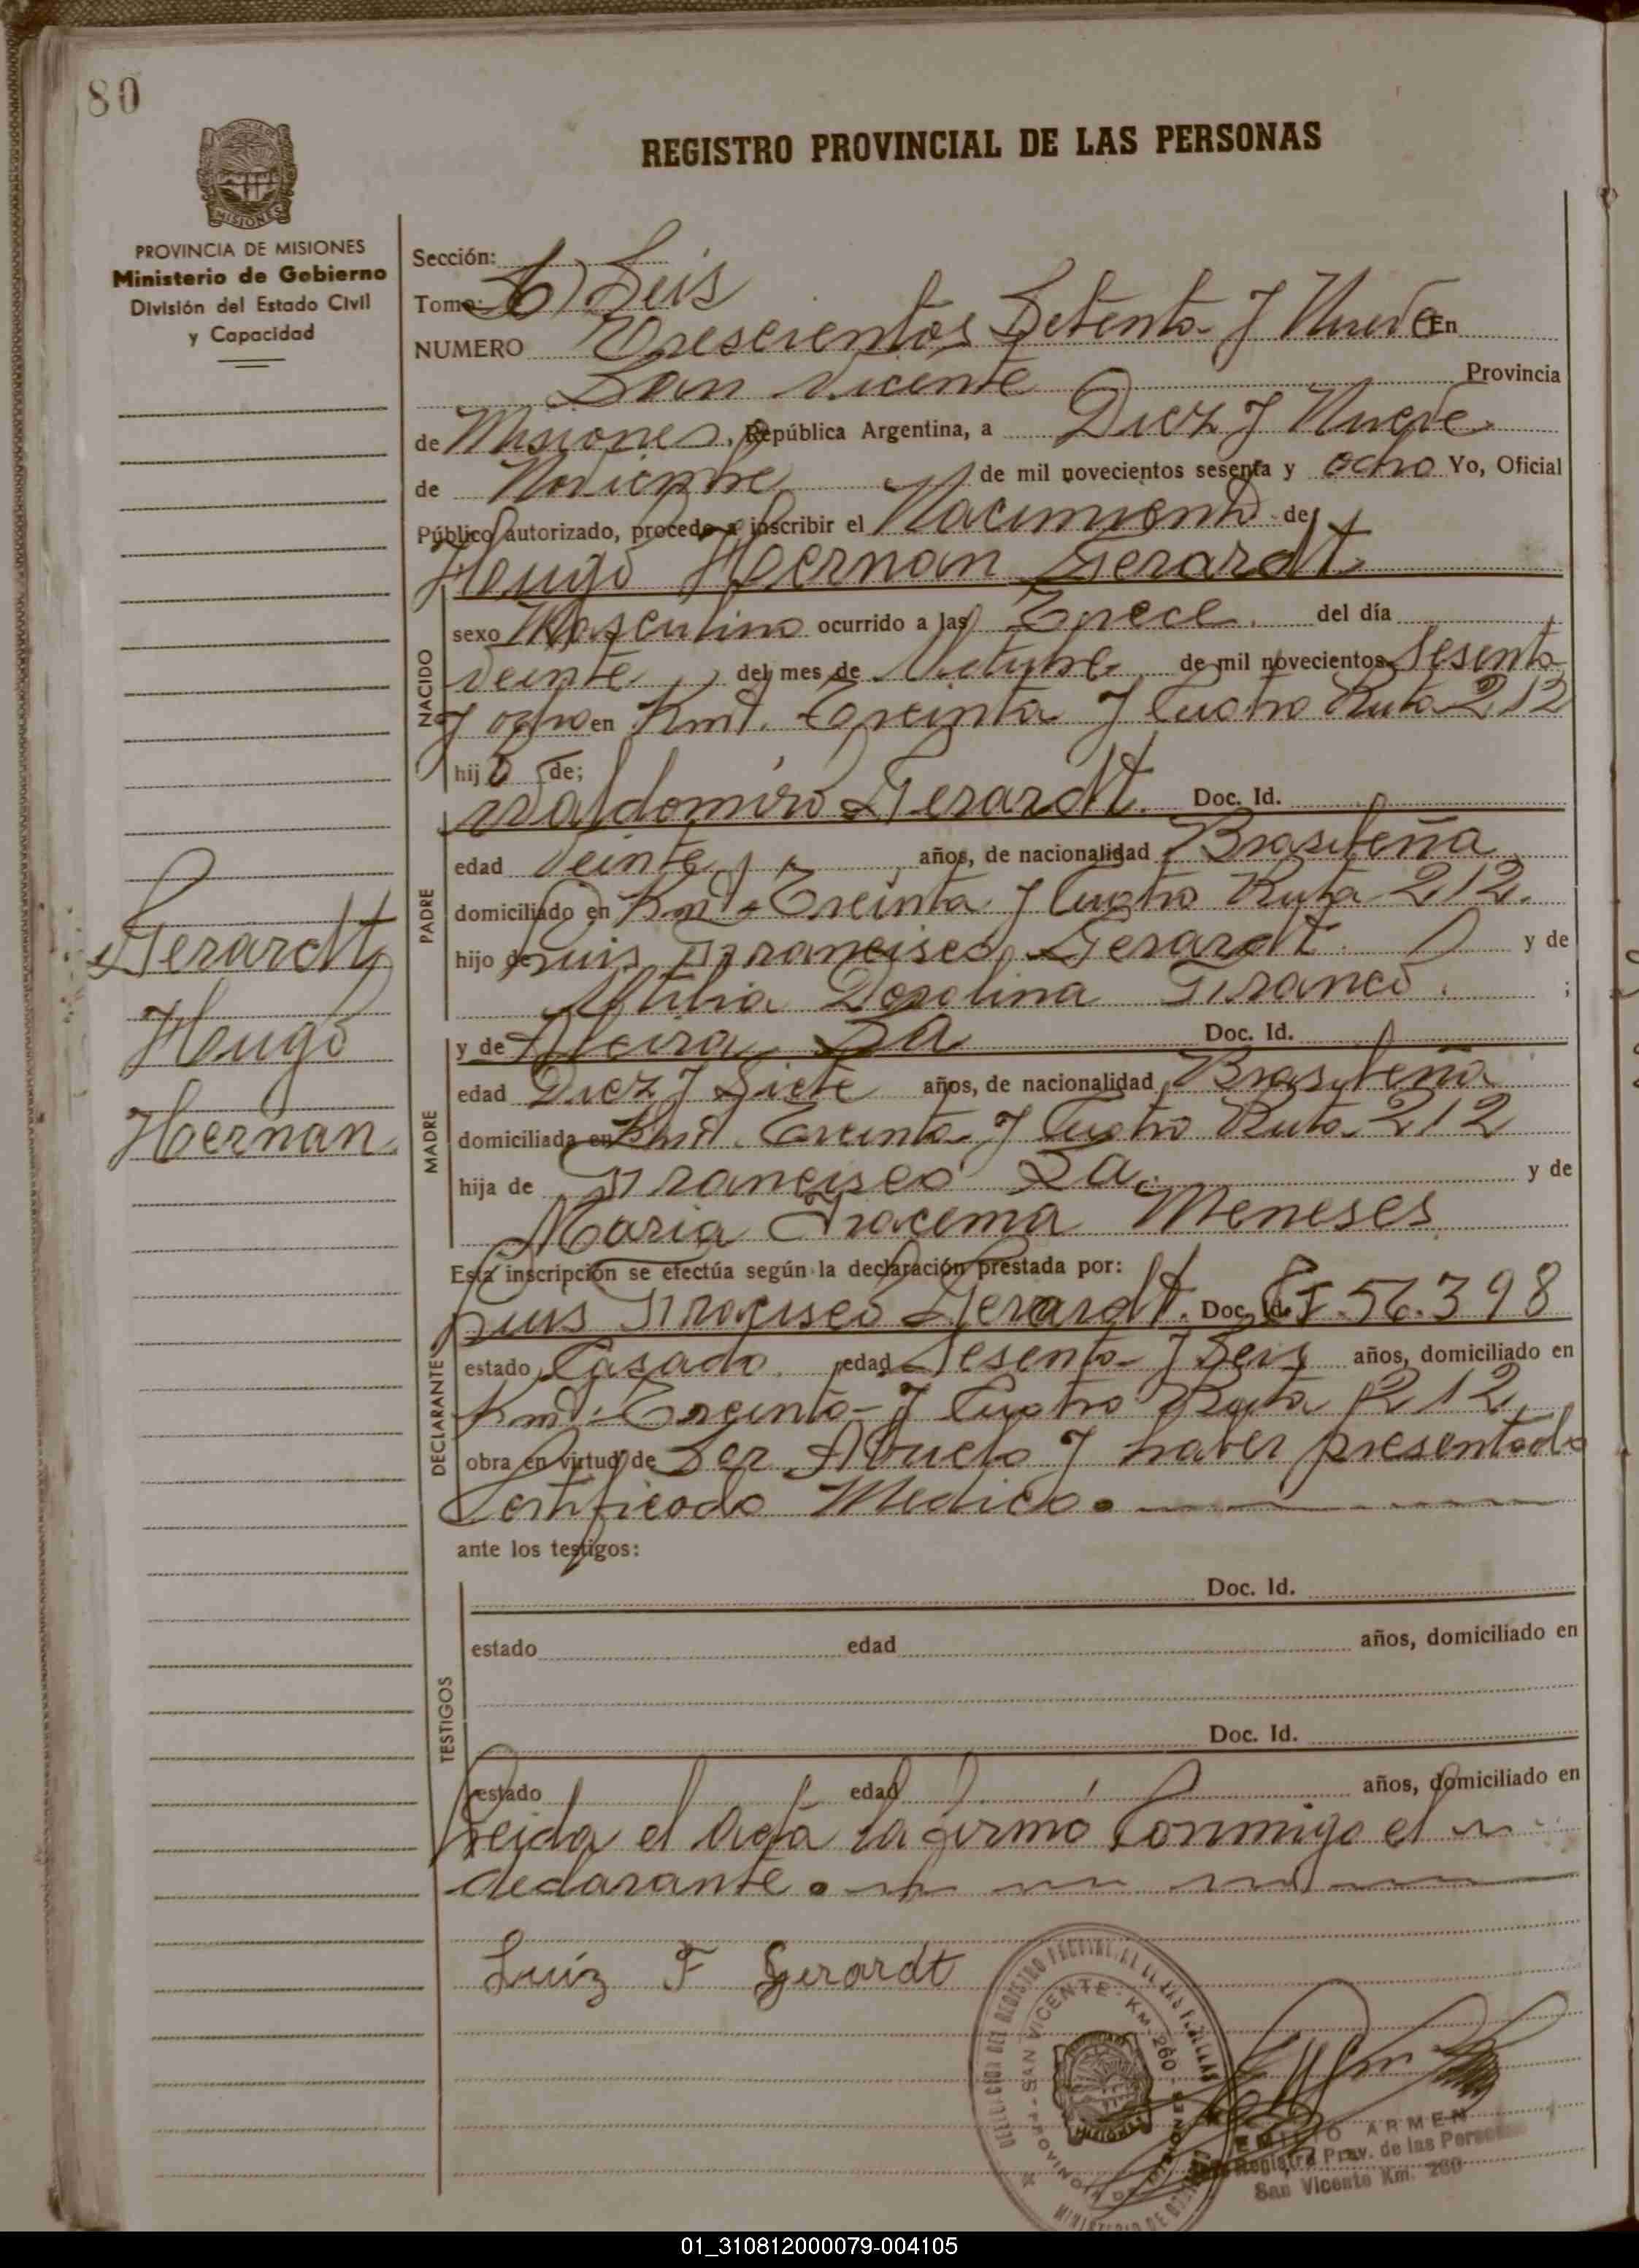 80
REGISTRO PROVINCIAL DE LAS PERSONAS
PROVINCIA DE MISIONES
Ministerio de Gobierno
División del Estado Civil
y Capacidad
Sección:
Tomo: 6) Seis
NUMERO Trescientos Setenta y Nueve En
San Vicente Provincia
de Misiones, República Argentina, a Diez y Nueve
de Noviembre de mil novecientos sesenta y ocho Yo, Oficial
Público autorizado, procedo a inscribir el Nacimiento de
Hugo Hernan Gerardt
NACIDO
sexo Masculino ocurrido a las Trece del día
Veinte del mes de Octubre de mil novecientos Sesenta
y ocho en Kmt. Treinta y Cuatro Ruta 212
hijo de;
PADRE
Valdomiro Gerardt. Doc. Id.
edad Veinte años, de nacionalidad Brasileña
domiciliado en Kmt. Treinta y Cuatro Ruta 212.
hijo de Luis Francisco Gerardt y de
Dosolina Franco ;
MADRE
y de Alcira Sa Doc. Id.
edad Diez y Siete años, de nacionalidad Brasileña
domiciliada en Kmt. Treinta y Cuatro Ruta 212
hija de Francisco Sa. y de
Maria Iracema Meneses
Esta inscripción se efectúa según la declaración prestada por:
DECLARANTE
Luis Fracisco Gerardt. Doc. Id. 56.398
estado Casado. edad Sesenta y Seis años, domiciliado en
Kmt. Treinta y Cuatro Ruta 212,
obra en virtud de Ser Abuelo y haber presentado
Certificado Medico.
ante los testigos:
TESTIGOS
Doc. Id.
estado edad años, domiciliado en
Doc. Id.
estado edad años, domiciliado en
Leida el Acta la firmo Conmigo el
declarante.
Gerardt
Hugo
Hernan
Luiz F Gerardt
SAN VICENTE - KM. 260 - PROVINCIA DE MISIONES
EMILIO ARMEN
Registro Prov. de las Personas
San Vicente Km. 260
01_310812000079-004105